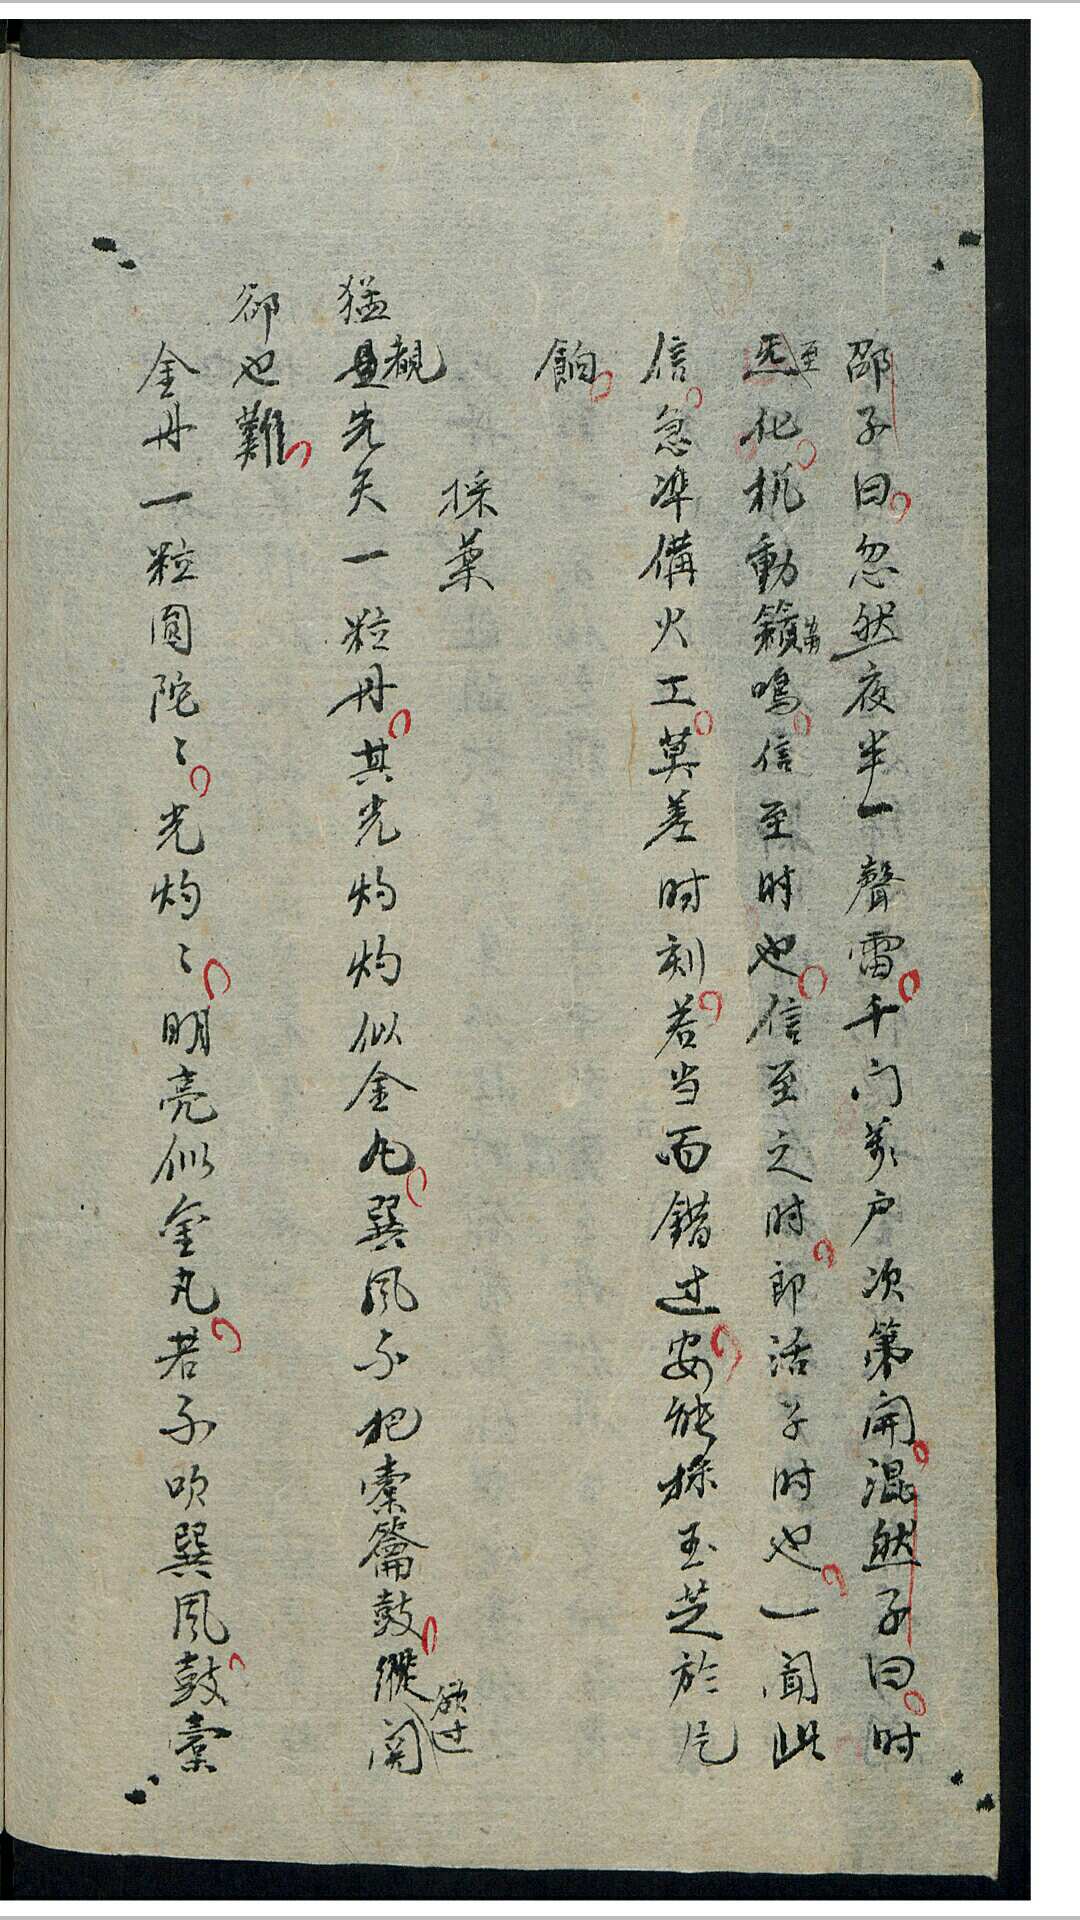 邵子曰忽然夜半一聲雷千门萬户次第開混然子曰时
至炁化机動籟鳴信至时也信至之时即活子时也一闻此
信急凖備火工莫差时刻若当面錯过安能採玉芝於片
餉
採薬
猛覩先天一粒丹其光灼灼似金丸巽风不把橐籥鼓縱欲过関
卻也難
金丹一粒圓陀〻光灼〻明亮似金丸若不吹巽风鼓橐